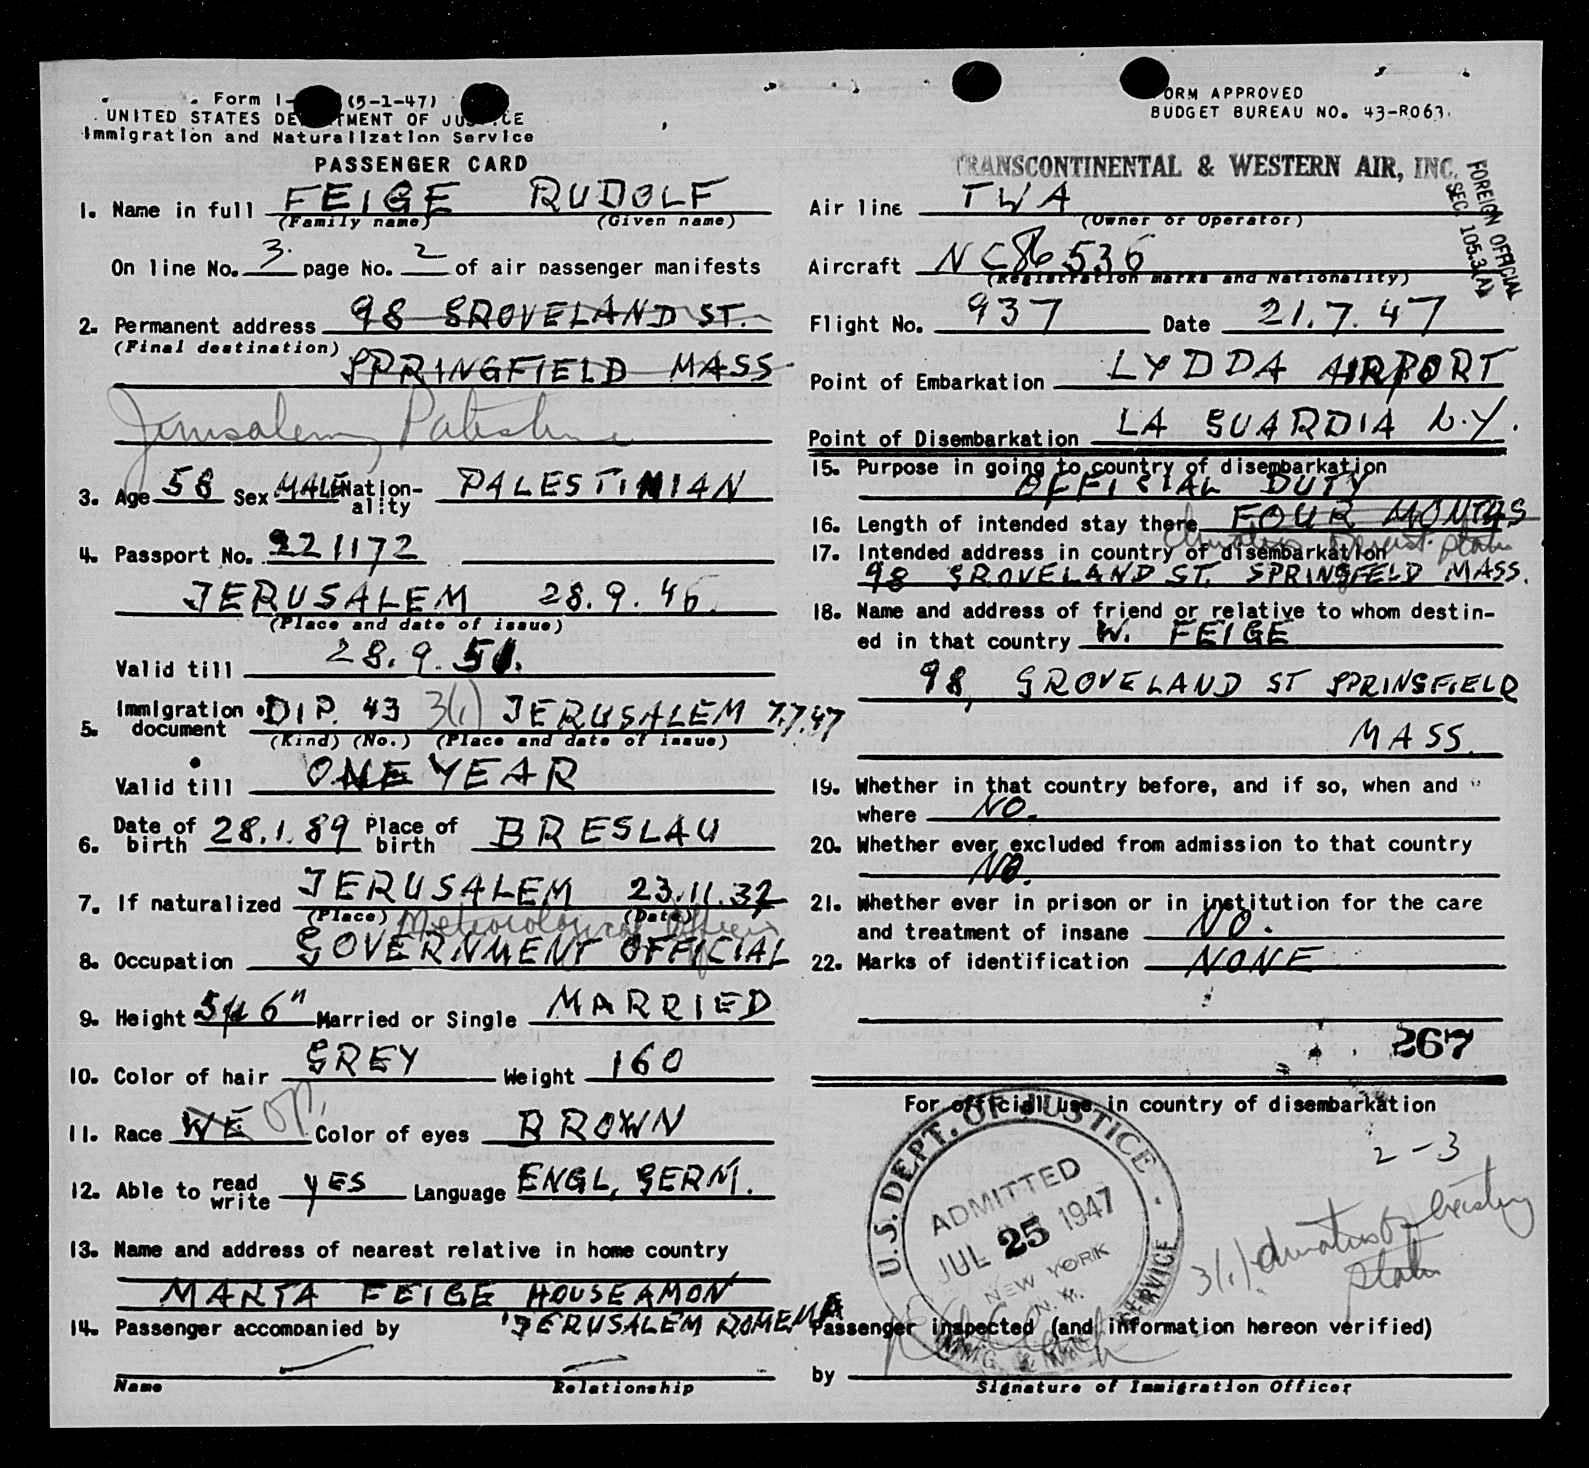 Form I- (5-1-47)
UNITED STATES DEPARTMENT OF JUSTICE
Immigration and Naturalization Service
PASSENGER CARD
FORM APPROVED
BUDGET BUREAU NO. 43-R063.
TRANSCONTINENTAL & WESTERN AIR, INC.
FOREIGN OFFICIAL
SEC. 105.3(A)
1. Name in full FEIGE RUDOLF
(Family name) (Given name)
On line No. 3. page No. 2 of air passenger manifests
2. Permanent address 98 GROVELAND ST.
(Final destination)
SPRINGFIELD MASS
Jerusalem, Palestine
3. Age 58 Sex MALE Nationality PALESTINIAN
4. Passport No. 221172
JERUSALEM 28.9.46.
(Place and date of issue)
Valid till 28.9.51.
5. Immigration document DIP. 43 3(1) JERUSALEM 7.7.47
(Kind) (No.) (Place and date of issue)
Valid till ONE YEAR
6. Date of birth 28.1.89 Place of birth BRESLAU
7. If naturalized JERUSALEM 23.11.32
(Place) (Date)
Meteorological Officer
8. Occupation GOVERNMENT OFFICIAL
9. Height 5 6" Married or Single MARRIED
10. Color of hair GREY Weight 160
11. Race WE Color of eyes BROWN
12. Able to read write YES Language ENGL, GERM.
13. Name and address of nearest relative in home country
MARTA FEIGE HOUSE AMON
JERUSALEM ROMEMA
14. Passenger accompanied by
Name Relationship
Air line TWA
(Owner or Operator)
Aircraft NC86536
(Registration marks and Nationality)
Flight No. 937 Date 21.7.47
Point of Embarkation LYDDA AIRPORT
Point of Disembarkation LA GUARDIA N.Y.
15. Purpose in going to country of disembarkation
OFFICIAL DUTY
16. Length of intended stay there FOUR MONTHS
17. Intended address in country of disembarkation
98 GROVELAND ST. SPRINGFIELD MASS.
18. Name and address of friend or relative to whom destin-
ed in that country W. FEIGE
98, GROVELAND ST SPRINGFIELD
MASS.
19. Whether in that country before, and if so, when and
where NO.
20. Whether ever excluded from admission to that country
NO.
21. Whether ever in prison or in institution for the care
and treatment of insane NO.
22. Marks of identification NONE
267
For official use in country of disembarkation
2-3
U.S. DEPT. OF JUSTICE
ADMITTED
JUL 25 1947
NEW YORK
N.Y.
IMMIG. & NAT. SERVICE
3(1) duration of existing
status
Passenger inspected (and information hereon verified)
by
Signature of Immigration Officer